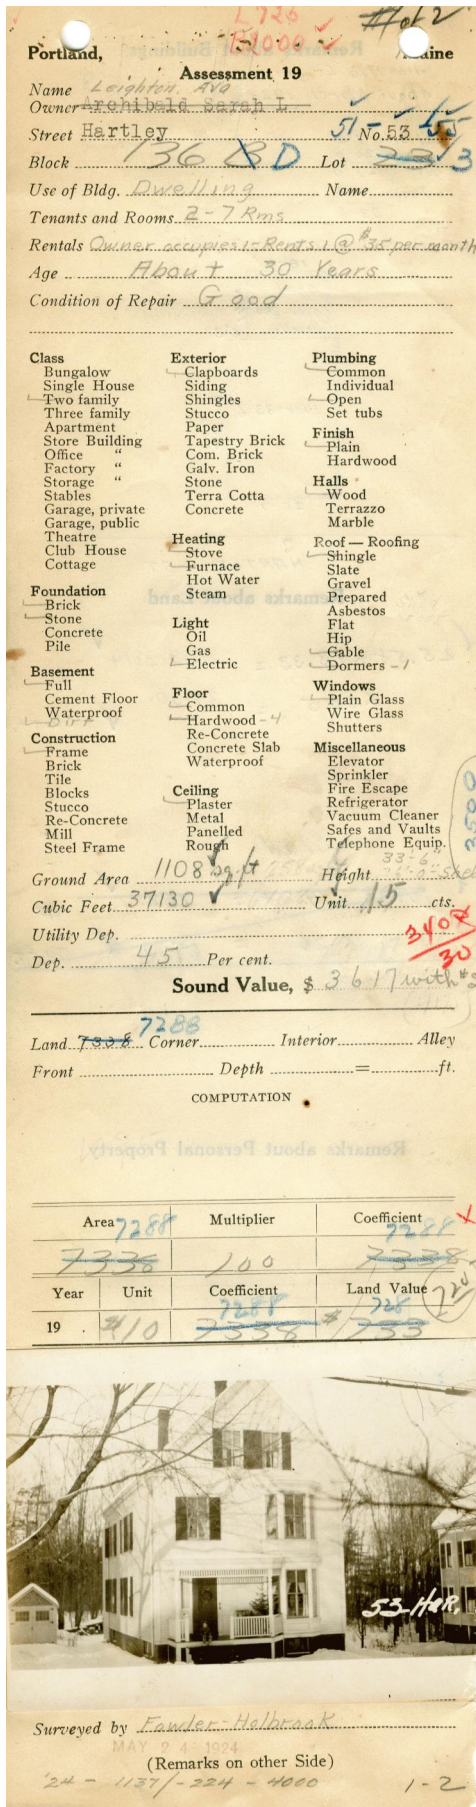 L 726
B 1000
# 1 of 2
Portland, Maine
Assessment 19
Name Leighton, Ava
Owner Archibald Sarah L
Street Hartley 51- No. 53 -55
Block 136 B D Lot 23 13
Use of Bldg. Dwelling Name
Tenants and Rooms 2-7 Rms
Rentals Owner occupies 1-Rents 1 @ $35 per month
Age About 30 Years
Condition of Repair Good
Class
Bungalow
Single House
Two family
Three family
Apartment
Store Building
Office "
Factory "
Storage "
Stables
Garage, private
Garage, public
Theatre
Club House
Cottage
Foundation
Brick
Stone
Concrete
Pile
Basement
Full
Cement Floor
Waterproof
Dirt
Construction
Frame
Brick
Tile
Blocks
Stucco
Re-Concrete
Mill
Steel Frame
Exterior
Clapboards
Siding
Shingles
Stucco
Paper
Tapestry Brick
Com. Brick
Galv. Iron
Stone
Terra Cotta
Concrete
Heating
Stove
Furnace
Hot Water
Steam
Light
Oil
Gas
Electric
Floor
Common
Hardwood - 4
Re-Concrete
Concrete Slab
Waterproof
Ceiling
Plaster
Metal
Panelled
Rough
Plumbing
Common
Individual
Open
Set tubs
Finish
Plain
Hardwood
Halls
Wood
Terrazzo
Marble
Roof — Roofing
Shingle
Slate
Gravel
Prepared
Asbestos
Flat
Hip
Gable
Dormers - 1
Windows
Plain Glass
Wire Glass
Shutters
Miscellaneous
Elevator
Sprinkler
Fire Escape
Refrigerator
Vacuum Cleaner
Safes and Vaults
Telephone Equip.
3500
Ground Area 1108 sq ft Height 33'-6"
Cubic Feet 37130 Unit .15 cts.
Utility Dep.
Dep. 45 Per cent.
30
Sound Value, $ 3617 with
7288
Land 7338 Corner Interior Alley
Front Depth = ft.
COMPUTATION
Area 7288 Multiplier Coefficient 7288
7338 100 7338
Year Unit Coefficient Land Value 720
7288 728
19 $10 7338 $ 733
53 Har.
Surveyed by Fowler-Holbrook
MAY 24 1924
(Remarks on other Side)
'24 - 1137/-224 - 4000 1-2